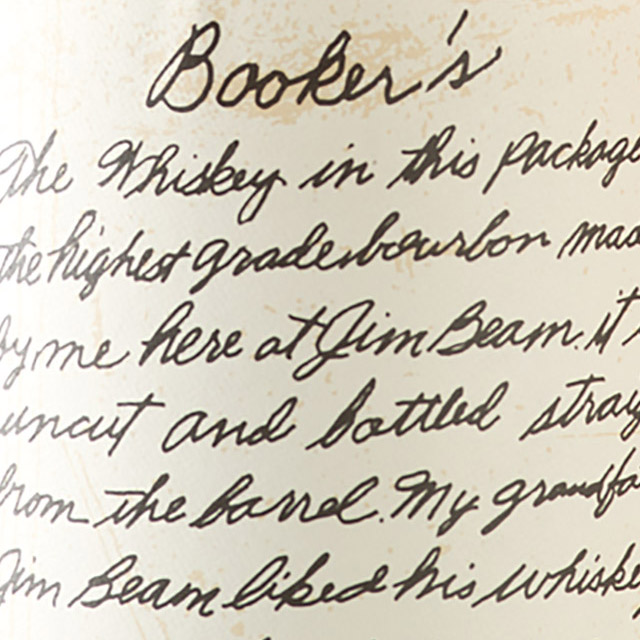 Booker's
The Whiskey in this packag
the highest grade bourbon mad
by me here at Jim Beam. it
uncut and bottled straig
from the barrel. My grandfa
Jim Beam liked his whiske